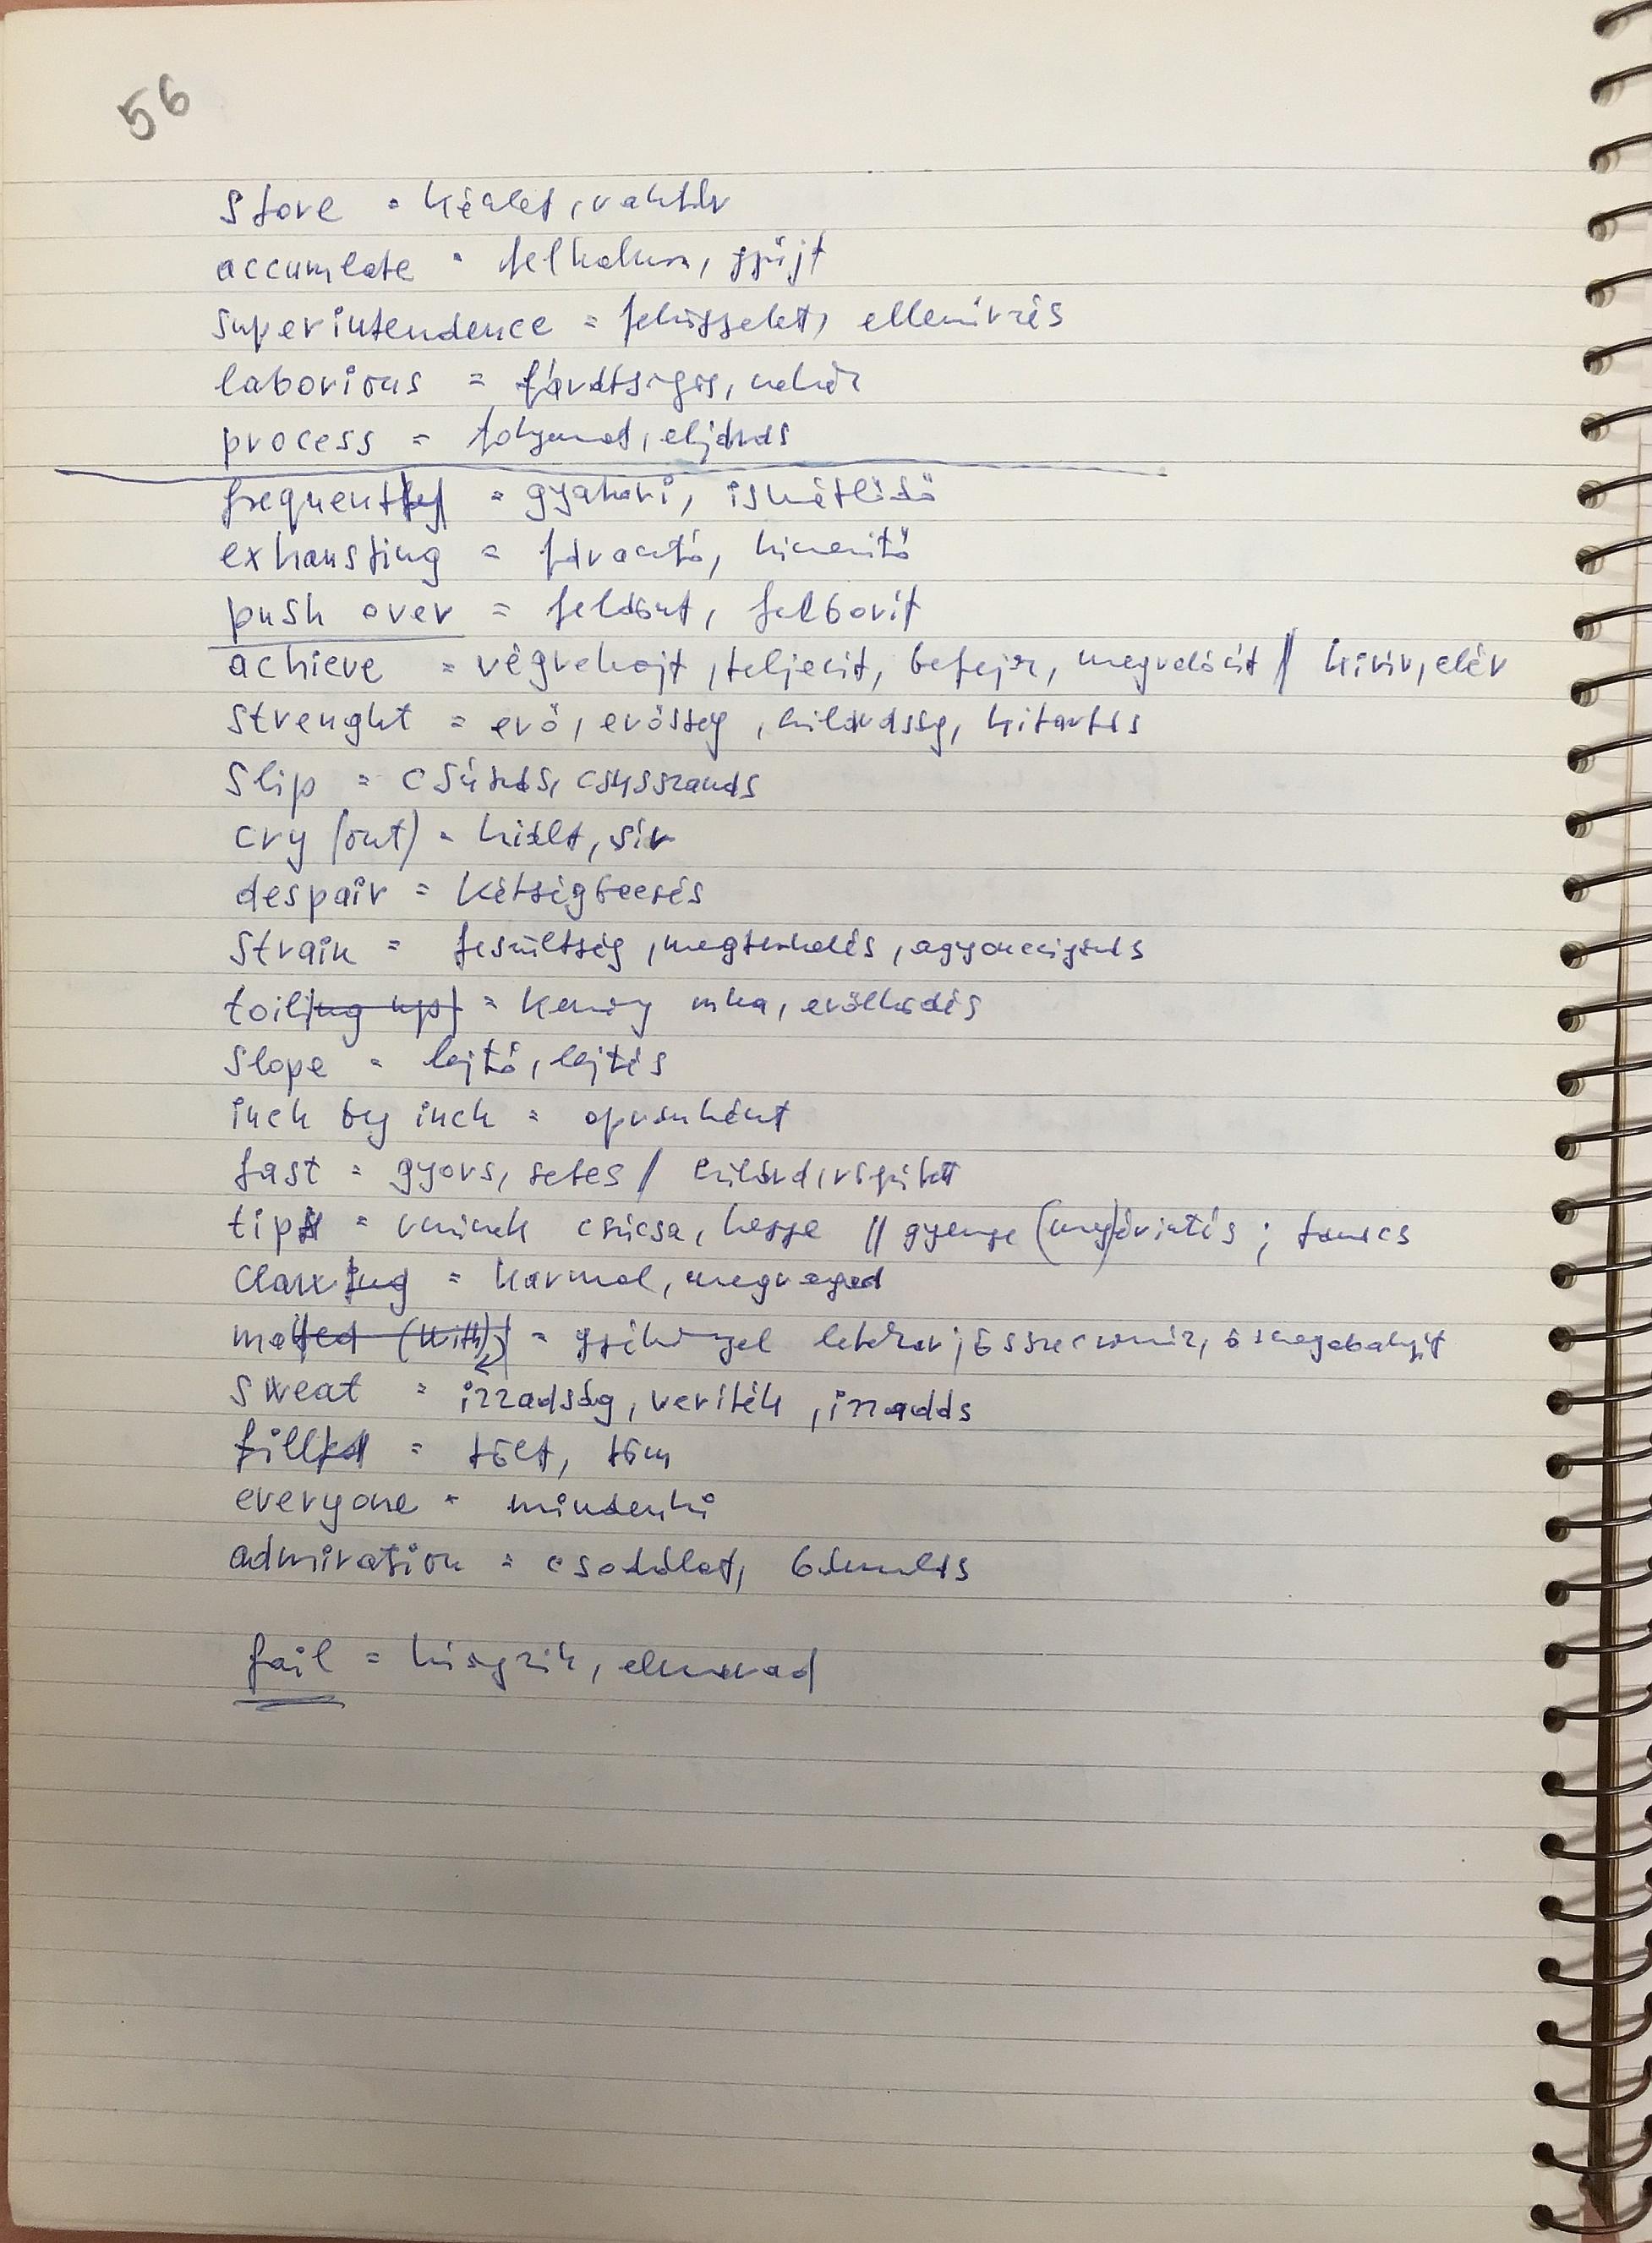 56
store = készlet, raktár
accumlate = felhalmoz, gyűjt
superintendence = felügyelet, ellenőrzés
laborious = fáradtságos, nehéz
process = folyamat, eljárás
frequently = gyakori, ismétlődő
exhausting = fárasztó, kimerítő
push over = feldönt, felborít
achieve = végrehajt, teljesít, befejez, megvalósít // kivív, elér
strenght = erő, erősség, szilárdság, kitartás
slip = csúszás, csusszanás
cry (out) = kiált, sír
despair = kétségbeesés
strain = feszültség, megterhelés, agyonhajszolás
toil(ing up) = kemény mka, erőlködés
slope = lejtő, lejtés
inch by inch = apránként
fast = gyors, sebes / szilárd, rögzített
tips = vminek csúcsa, hegye // gyenge (meg)érintés ; tanács
clawing = karmol, megragad
matted (with) = gyékénnyel letakar; összecsomóz, összegabalyít
sweat = izzadság, veríték, izzadás
filled = tölt, töm
everyone = mindenki
admiration = csodálat, bámulás
fail = hiányzik, elmarad